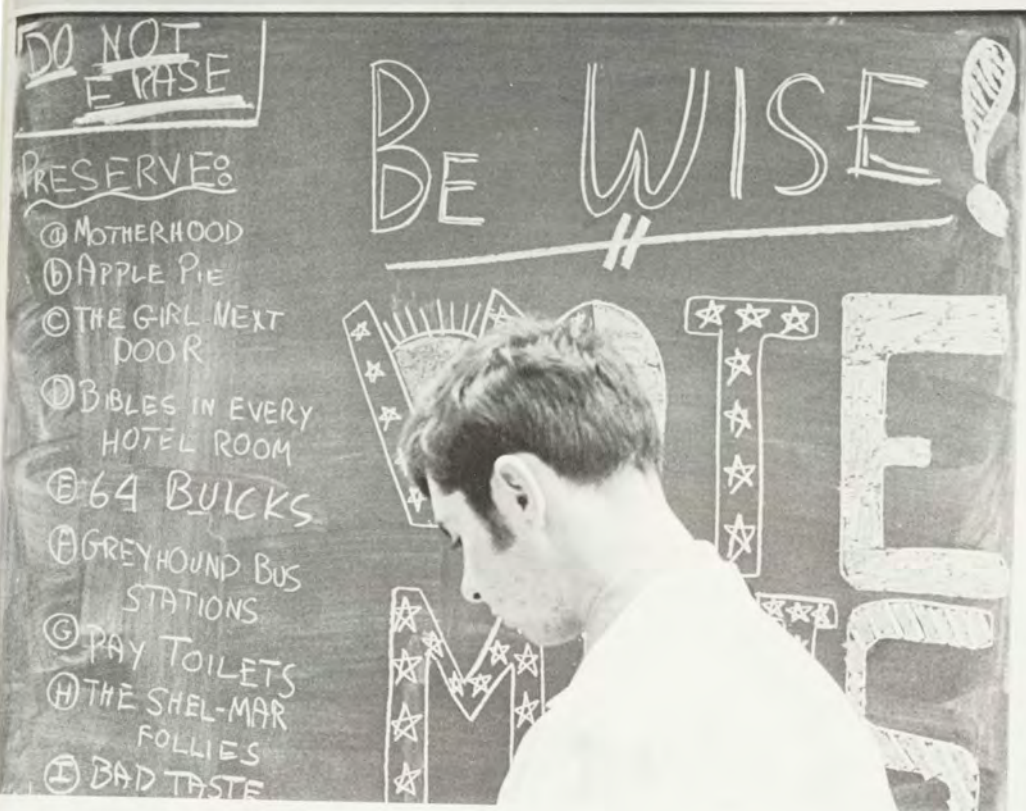 DO NOT
ERASE
PRESERVE:
ⓐ MOTHERHOOD
ⓑ APPLE PIE
Ⓒ THE GIRL NEXT
DOOR
Ⓓ BIBLES IN EVERY
HOTEL ROOM
Ⓔ 64 BUICKS
Ⓕ GREYHOUND BUS
STATIONS
Ⓖ PAY TOILETS
Ⓗ THE SHEL-MAR
FOLLIES
Ⓘ BAD TASTE
BE WISE!
VOTE